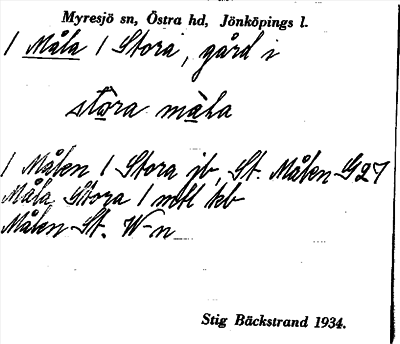 Myresjö sn, Östra hd, Jönköpings l.
1 Måla 1 Stora, gård i
stòra màla
1 Målen 1 Stora jb, St. Målen G27
Måla Stora 1 mtl kb
Målen St. W-n
Stig Bäckstrand 1934.